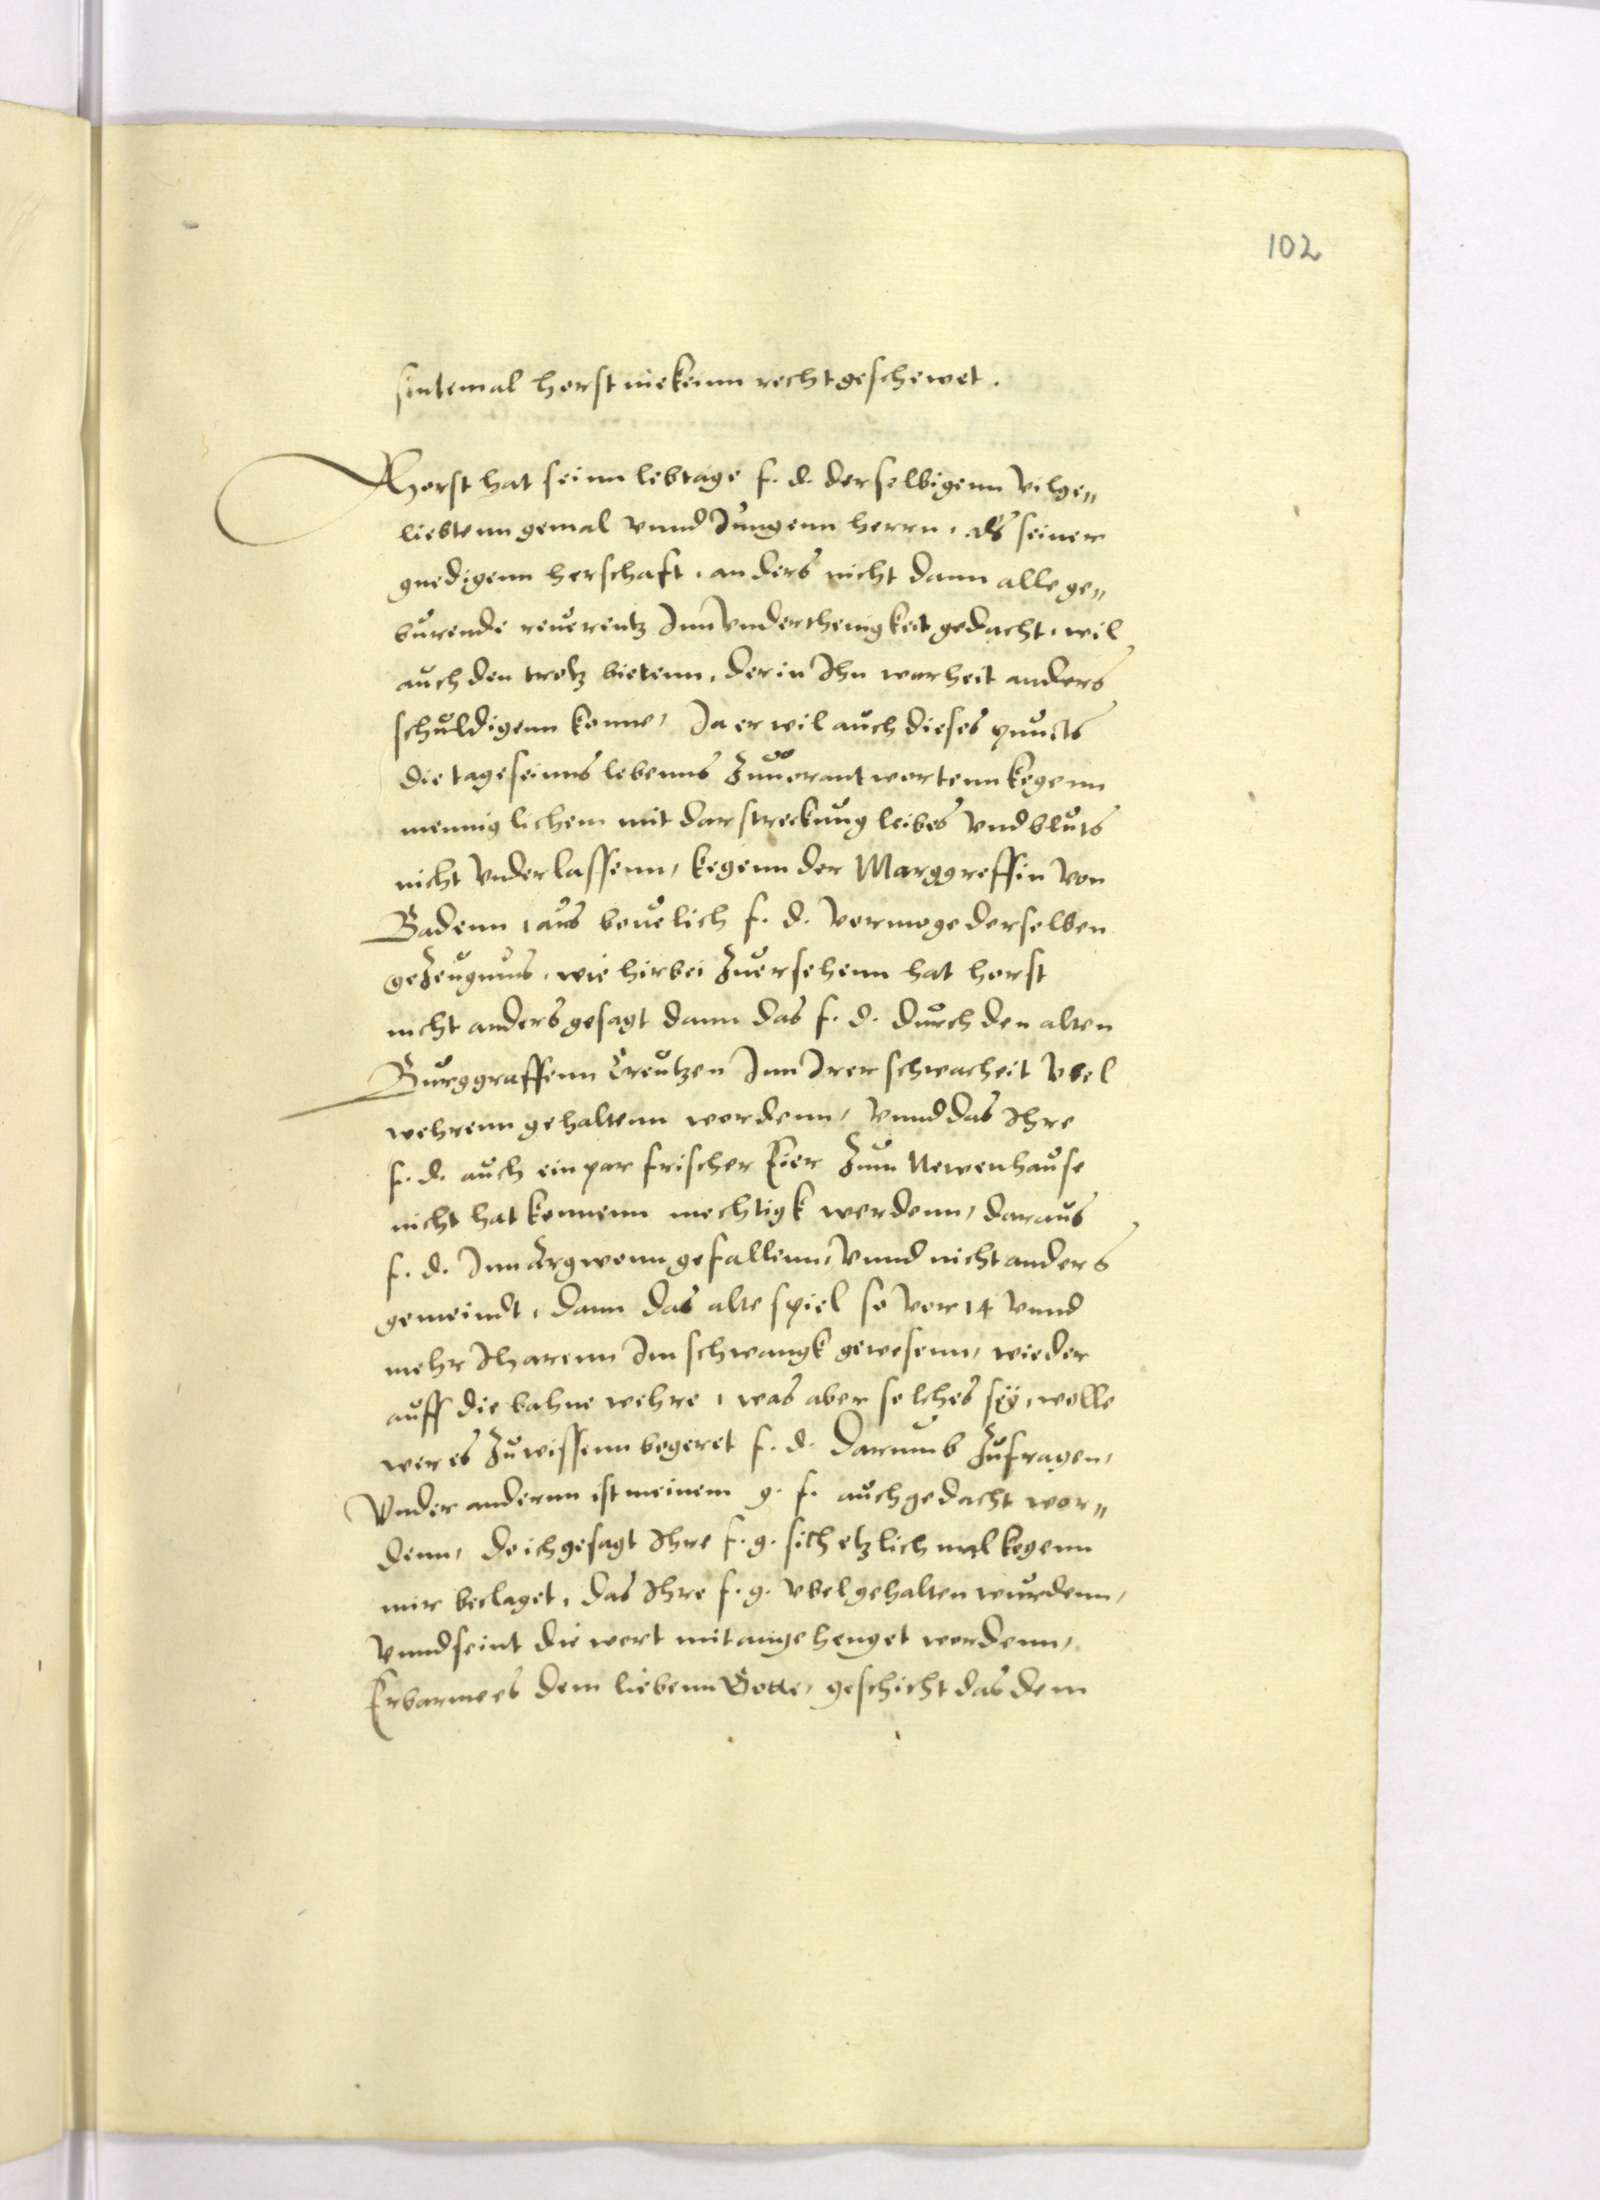 102
sintemal horst nie keinn recht geschewet.
Horst hat seinn lebtage f. d. derselbigenn vilge„
liebtenn gemal vnnd Jungenn herrn, als seiner
gnedigenn herschaft, anders nicht dann alle ge„
burende reuerentz Inn Vnderthenigkeit gedacht, wil
auch den trotz bietenn, der in Ihn warheit anders
schuldigenn konne, Ja er wil auch dieses puncts
die tage seinns lebenns Zuuorantwortenn kegenn
menniglichem mit darstreckung leibes vnd bluts
nicht Vnderlassenn, kegenn der Marggreffin Von
Badenn, aus beuelich f. d. vermoge derselben
geZeugnus, wie hirbei Zuersehenn hat horst
nicht anders gesagt dann das f. d. durch den alten
Burggraffenn Creutzen Inn Irer schwacheit Vbel
wehrenn gehaltenn wordenn, Vnnd das Ihre
f. d. auch ein par frischer Eier Zum Newenhause
nicht hat konnenn mechtigk werdenn, daraus
f. d. Inn Argwonn gefallenn, Vnnd nicht anders
gemeindt, dann das alte spiel so Vor 14 Vnnd
mehr Iharenn Im schwangk gewesenn, wieder
auff die bahne wehre, was aber solches sey, wolle
wer es Zuwissenn begeret f. d. darumb Zufragen,
Vnder anderm ist meinem g. f. auch gedacht wor„
denn, do ich gesagt Ihre f. g. sich etzlich mal kegenn
mir beclaget, das Ihre f. g. Vbel gehalten wurdenn,
Vnnd seint die wort mit angehenget wordenn,
Erbarme es dem liebenn Gotte, geschicht das dem